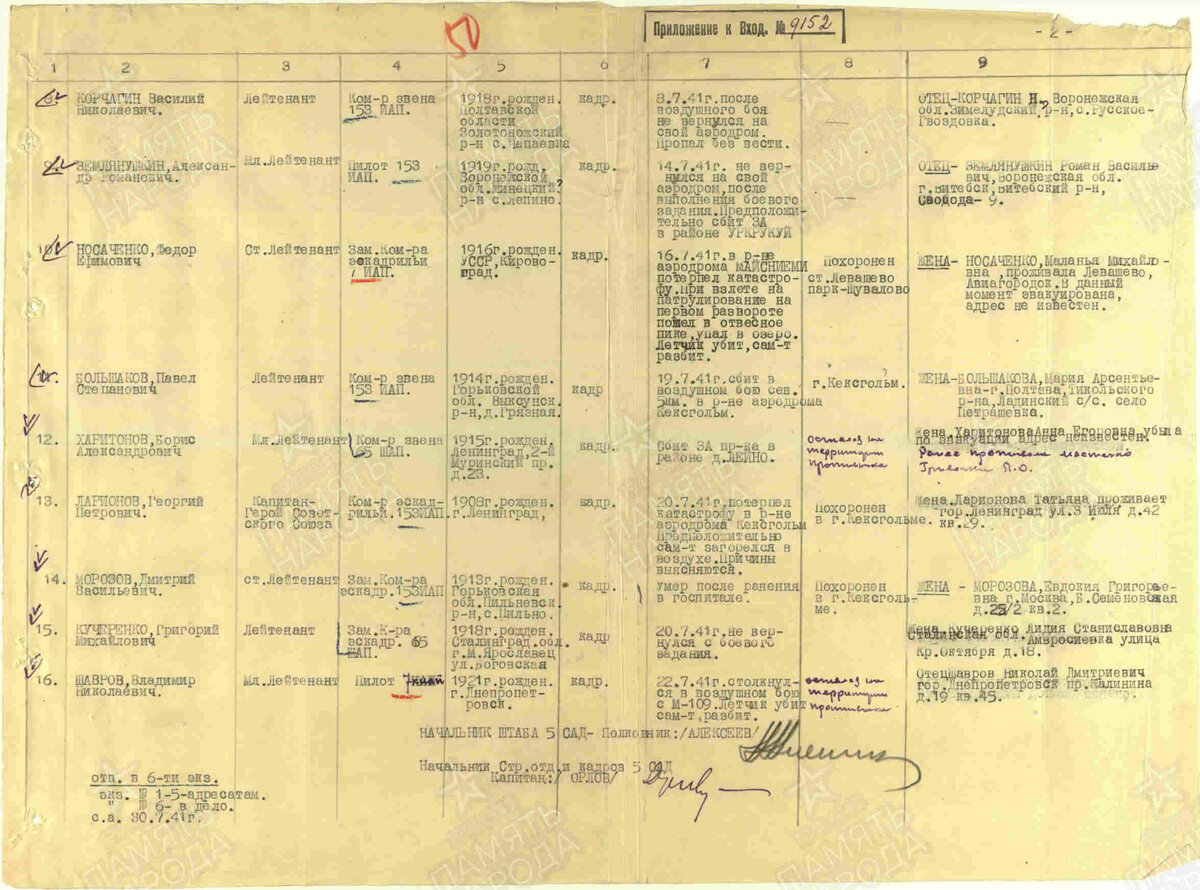 50
Приложение к Вход. № 9152
- 2 -
1 2 3 4 5 6 7 8 9
КОРЧАГИН Василий
Николаевич.
Лейтенант
Ком-р звена
153 ИАП.
1918г.рожден.
Полтавской
области
Золотоножский
р-н с.Чапаевка
кадр.
8.7.41г.после
воздушного боя
не вернулся на
свой аэродром.
Пропал без вести.
—
ОТЕЦ-КОРЧАГИН Н. Воронежская
обл.Зимелудский р-н,с.Русское-
Гвоздовка.
ЗЕМЛЯНУШКИН,Алексан-
др Романович.
Мл.Лейтенант
Пилот 153
ИАП.
1919г.рожд.
Воронежской
обл.Минецкий?
р-н с.Лепино.
кадр.
14.7.41г. не вер-
нулся на свой
аэродром,после
выполнения боевого
задания.Предположи-
тельно сбит ЗА
в районе УКРУКУЙ
—
ОТЕЦ- ЗЕМЛЯНУШКИН Роман Василь-
вич,Воронежская обл.
г.Витебск,Витебский р-н,
Свобода- 9.
НОСАЧЕНКО,Федор
Ефимович
Ст.Лейтенант
Зам.Ком-ра
эскадрильи
7 ИАП.
1916г.рожден.
УССР,Кирово-
град.
кадр.
16.7.41г.в р-не
аэродрома МАЙСНИЕМИ
потерпел катастро-
фу.При взлете на
патрулирование на
первом развороте
пошел в отвесное
пике,упал в озеро.
Летчик убит,сам-т
разбит.
Похоронен
ст.Левашево
парк-Щувалово
ЖЕНА- НОСАЧЕНКО,Маланья Михайло-
вна ,проживала Левашево,
Авиагородок.В данный
момент эвакуирована,
адрес не известен.
БОЛЬШАКОВ,Павел
Степанович
Лейтенант
Ком-р звена
153 ИАП.
1914г.рожден.
Горьковской
обл. Выксунск.
р-н,д.Грязная.
кадр
19.7.41г.сбит в
воздушном бою сев.
5км. в р-не аэродрома
Кексгольм.
г.Кексгольм.
ЖЕНА-БОЛЬШАКОВА,Мария Арсентье-
вна-г.Полтава,Тикольского
р-на,Ладинский с/с. село
Петрашевка.
12.
ХАРИТОНОВ,Борис
Александрович
Мл.Лейтенант
Ком-р звена
65 ШАП.
1915г.рожден.
Ленинград,2-й
Муринский пр.
д.23.
кадр.
Сбит ЗА пр-ка в
районе д.ЛЕЙНО.
остался на
территории
противника
Жена ХаритоноваАнна.Егоровна,убыла
по эвакуации адрес неизвестен.
13.
ЛАРИОНОВ,Георгий
Петрович.
Капитан-
Герой Совет-
ского Союза
Ком-р эскад-
рильи.153ИАП.
1908г.рожден.
г.Ленинград,
кадр.
20.7.41г.потерпел
катастрофу в р-не
аэродрома Кексгольм
Предположительно
сам-т загорелся в
воздухе.Причины
выясняются.
Похоронен
в г.Кексгольме.
Жена.Ларионова Татьяна проживает
гор.Ленинград ул.3 Июля д.42
кв.29.
14.
МОРОЗОВ,Дмитрий
Васильевич.
ст.Лейтенант
Зам.Ком-ра
эскадр.153ИАП
1913г.рожден.
Горьковская
обл.Пильневск.
р-н,с.Пильно.
кадр.
Умер после ранения
в госпитале.
Похоронен
в г.Кексголь-
ме.
ЖЕНА - МОРОЗОВА,Евдокия Григорье-
вна г.Москва,Б.Семеновская
д.25/2 кв.2.
15.
КУЧЕРЕНКО,Григорий
Михайлович
Лейтенант
Зам.К-ра
эскадр. 65
ШАП.
1918г.рожден.
Сталинград.обл.
г.М.Ярославец
ул.Воговская
кадр
20.7.41г.не вер-
нулся с боевого
задания.
Жена Кучеренко Лидия Станиславовна
Сталинская обл.Амвросиевка улица
Кр.Октября д.18.
16.
ШАВРОВ,Владимир
Николаевич.
Мл.Лейтенант
Пилот 7иап
1921г.рожден.
г.Днепропет-
ровск.
кадр.
22.7.41г.столкнул-
ся в воздушном бою
с М-109.Летчик убит
сам-т,разбит.
остался на
территории
противника
ОтецШавров Николай Дмитриевич
гор.Днепропетровск пр.Калинина
д.19 кв.45.
НАЧАЛЬНИК ШТАБА 5 САД- Полковник:/АЛЕКСЕЕВ/
Начальник Стр.отд.и кадров 5 САД
Капитан:/ ОРЛОВ/
отп. в 6-ти экз.
экз. № 1-5-адресатам.
" № 6- в дело.
с.а. 30.7.41г.
ПАМЯТЬ НАРОДА